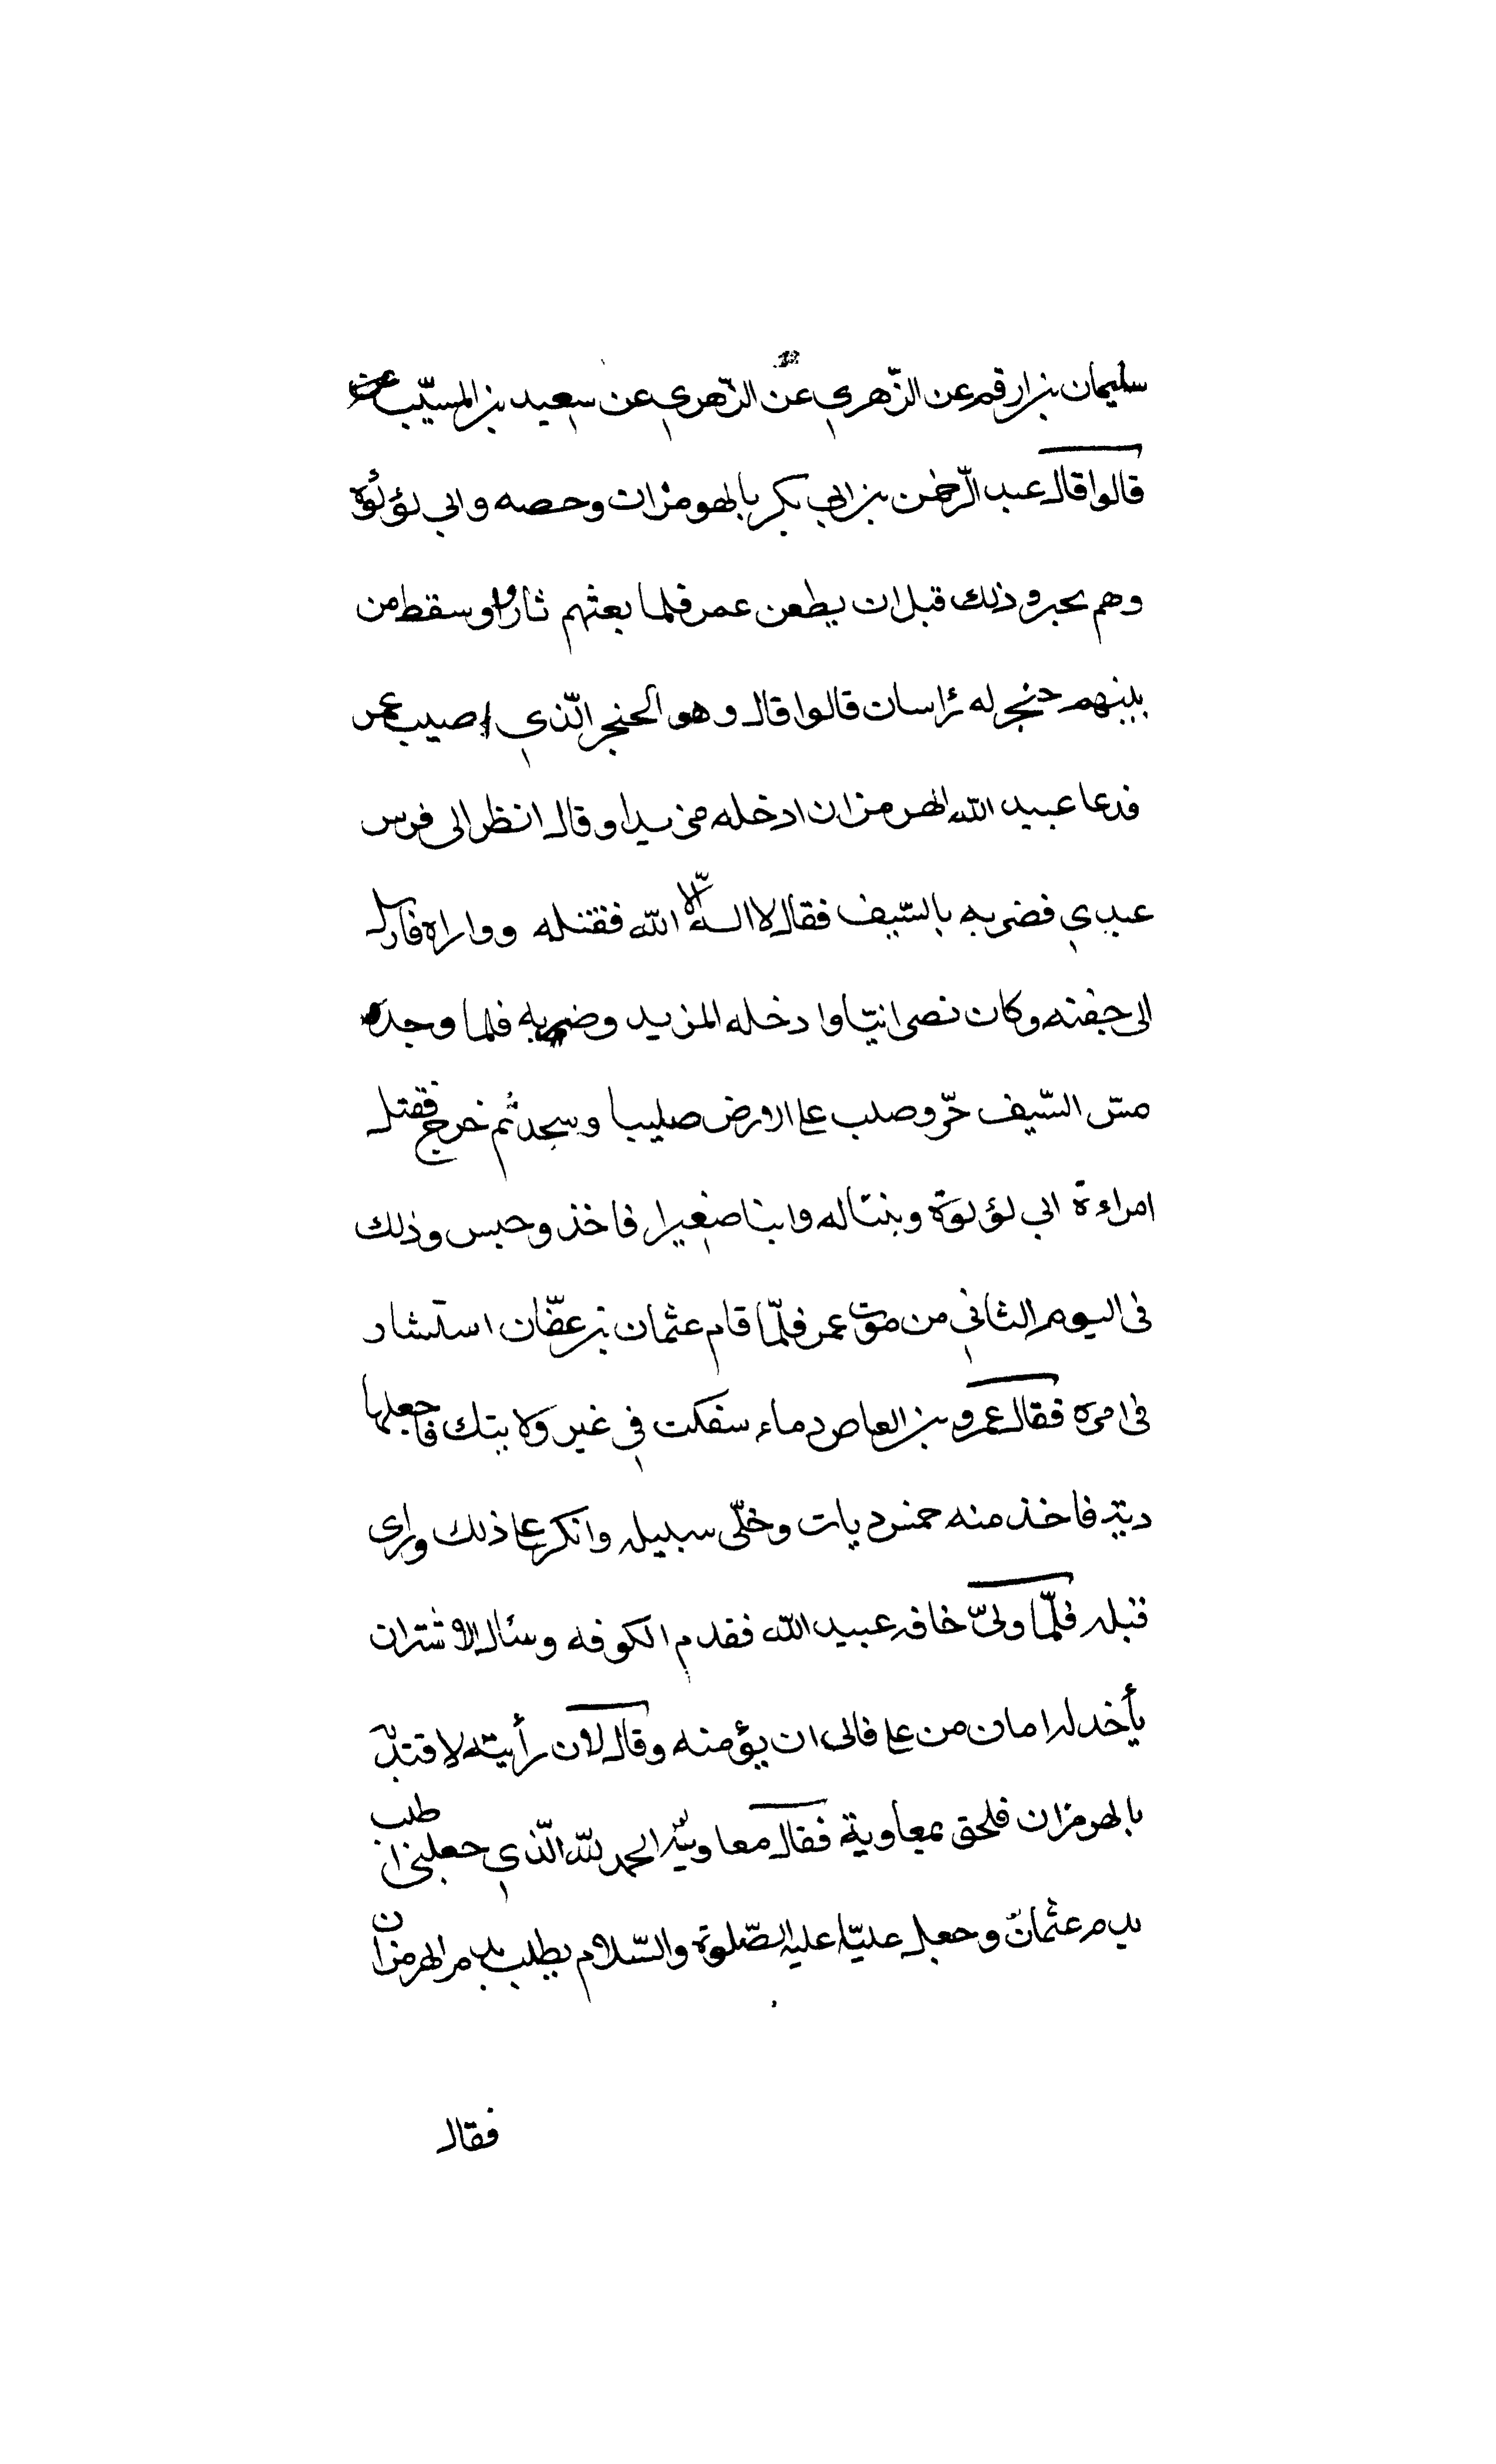 سليمان بن ارقم عن الزّهري عن الزّهري عن سعيد بن المسيّب
قالوا قال عبد الرّحمن بن ابي بكر بالهومزان وحصه وابي لؤلؤة
وهم بحبر و ذلك قبل ان يطعن عمر فلما بعثهم ثاروا وسقط من
بينهم خنجر له راسان قالوا قال وهو الخنجر الّذي اصيب عمر
فدعا عبيد الله الهرمزان ادخله مزيدا وقال انظر الى فرس
عبدي فضربه بالسّيف فقال لا اله الّا الله فقتله وواراه فارسل
الى جفنه وكان نصرانيّا وادخله المزيد وضربه فلما وجد
مسّ السّيف خرّ وصلب على الارض صليبا وسجد ثم خرج فقتل
امراءة ابي لؤلؤة وبنتا له وابنا صغيرا فاخذ وحبس وذلك
فى اليوم الثاني من موت عمر فلمّا قام عثمان بن عفّان استشار
فى امره فقال عمرو بن العاص دماء سفكت في غير ولايتك فاجعلها
دية فاخذ منه خمس ديات وخلّى سبيله وانكر على ذلك وراى
قتله فلمّا ولىّ خافه عبيد الله فقدم الكوفه وسال الاشتر ان
يأخد له امان من على فابى ان يؤمنه وقال لان رأيته لاقتلنّه
بالهرمزان فلحق بمعاوية فقال معاوية الحمد لله الّذي جعلنى اطلب
بدم عثمان وجعل عليّا عليه الصّلوة والسّلام يطلب بدم الهرمزان
فقال